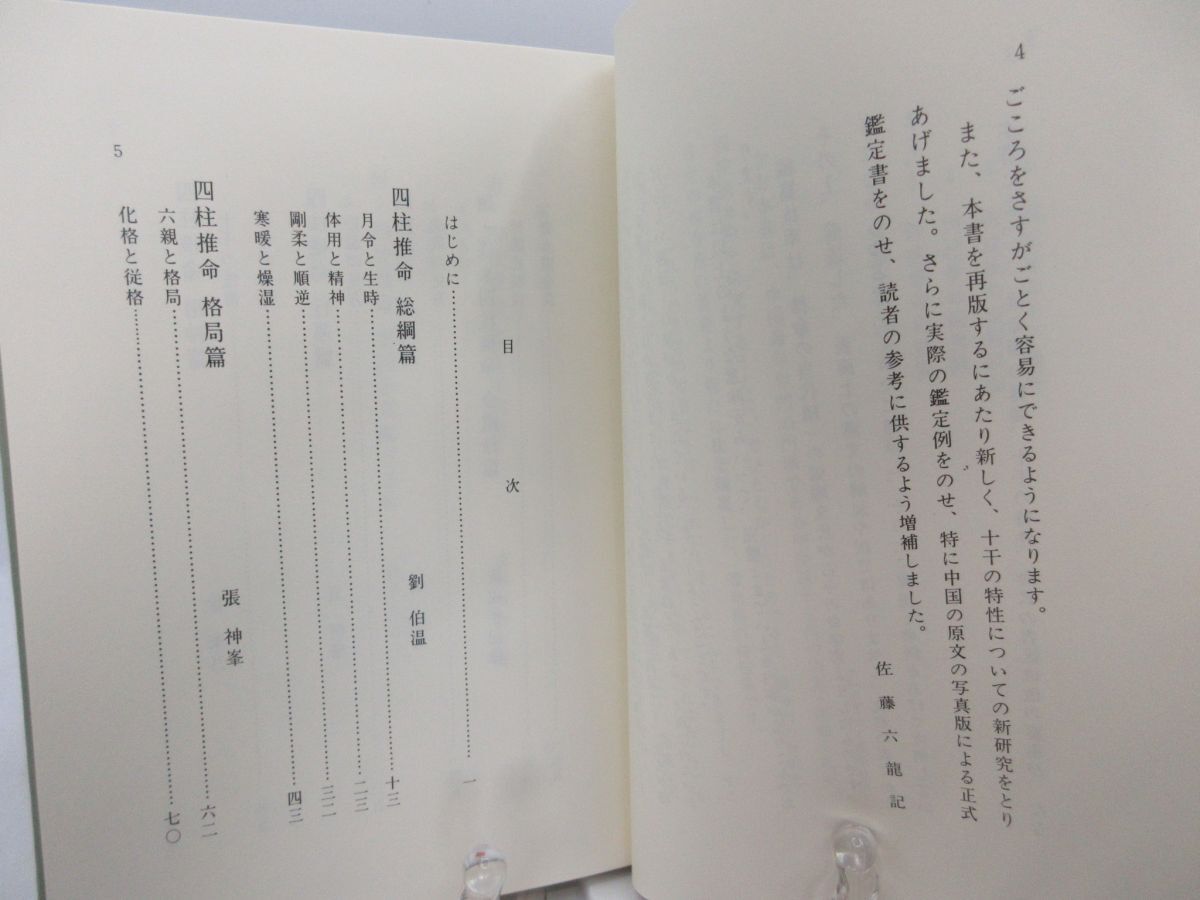 4
ごころをさすがごとく容易にできるようになります。
また、本書を再版するにあたり新しく、十干の特性についての新研究をとり
あげました。さらに実際の鑑定例をのせ、特に中国の原文の写真版による正式
鑑定書をのせ、読者の参考に供するよう増補しました。
佐藤六龍記
目次
はじめに……………………一
四柱推命 総綱篇 劉伯温
月令と生時……………………十三
体用と精神……………………二三
剛柔と順逆……………………三二
寒暖と燥湿……………………四三
四柱推命 格局篇 張神峯
六親と格局……………………六二
化格と従格……………………七〇
5